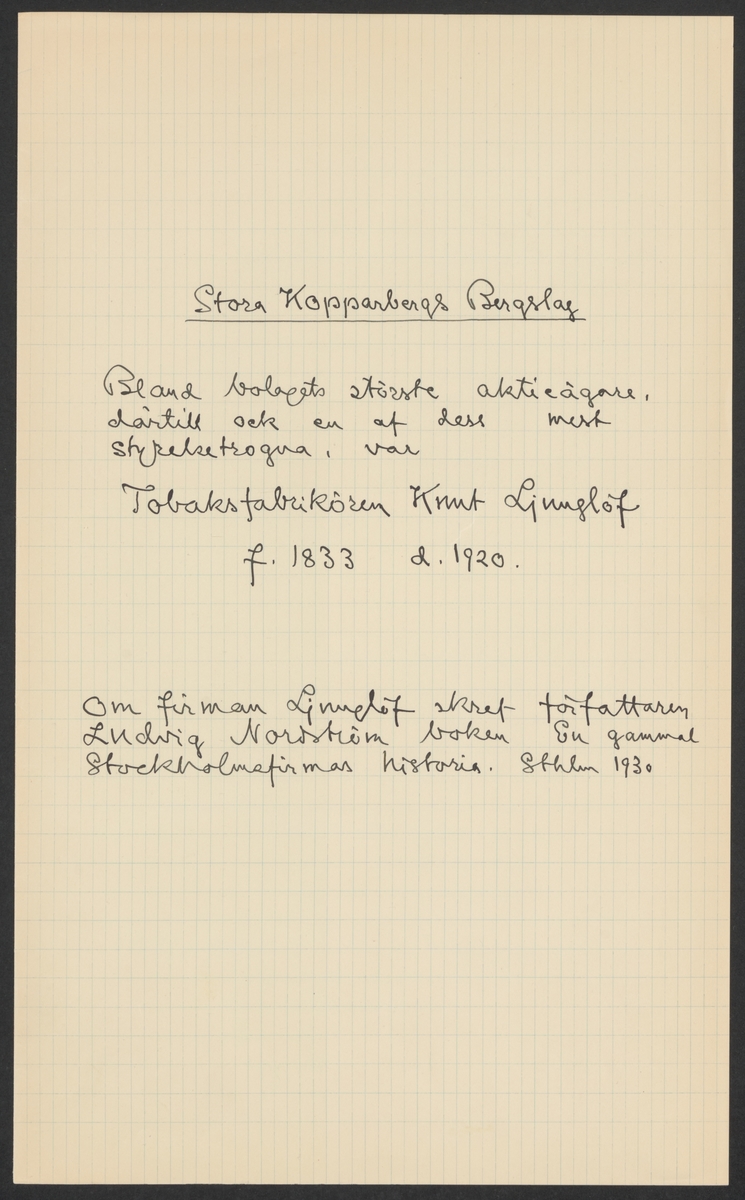 Stora Kopparbergs Bergslag
Bland bolagets största aktieägare,
därtill ock en af dess mest
styrelsetrogna, var
Tobaksfabrikören Knut Ljunglöf
f. 1833 d. 1920.
Om firman Ljunglöf skref författaren
Ludvig Nordström boken En gammal
Stockholmsfirmas historia. Sthlm 1930